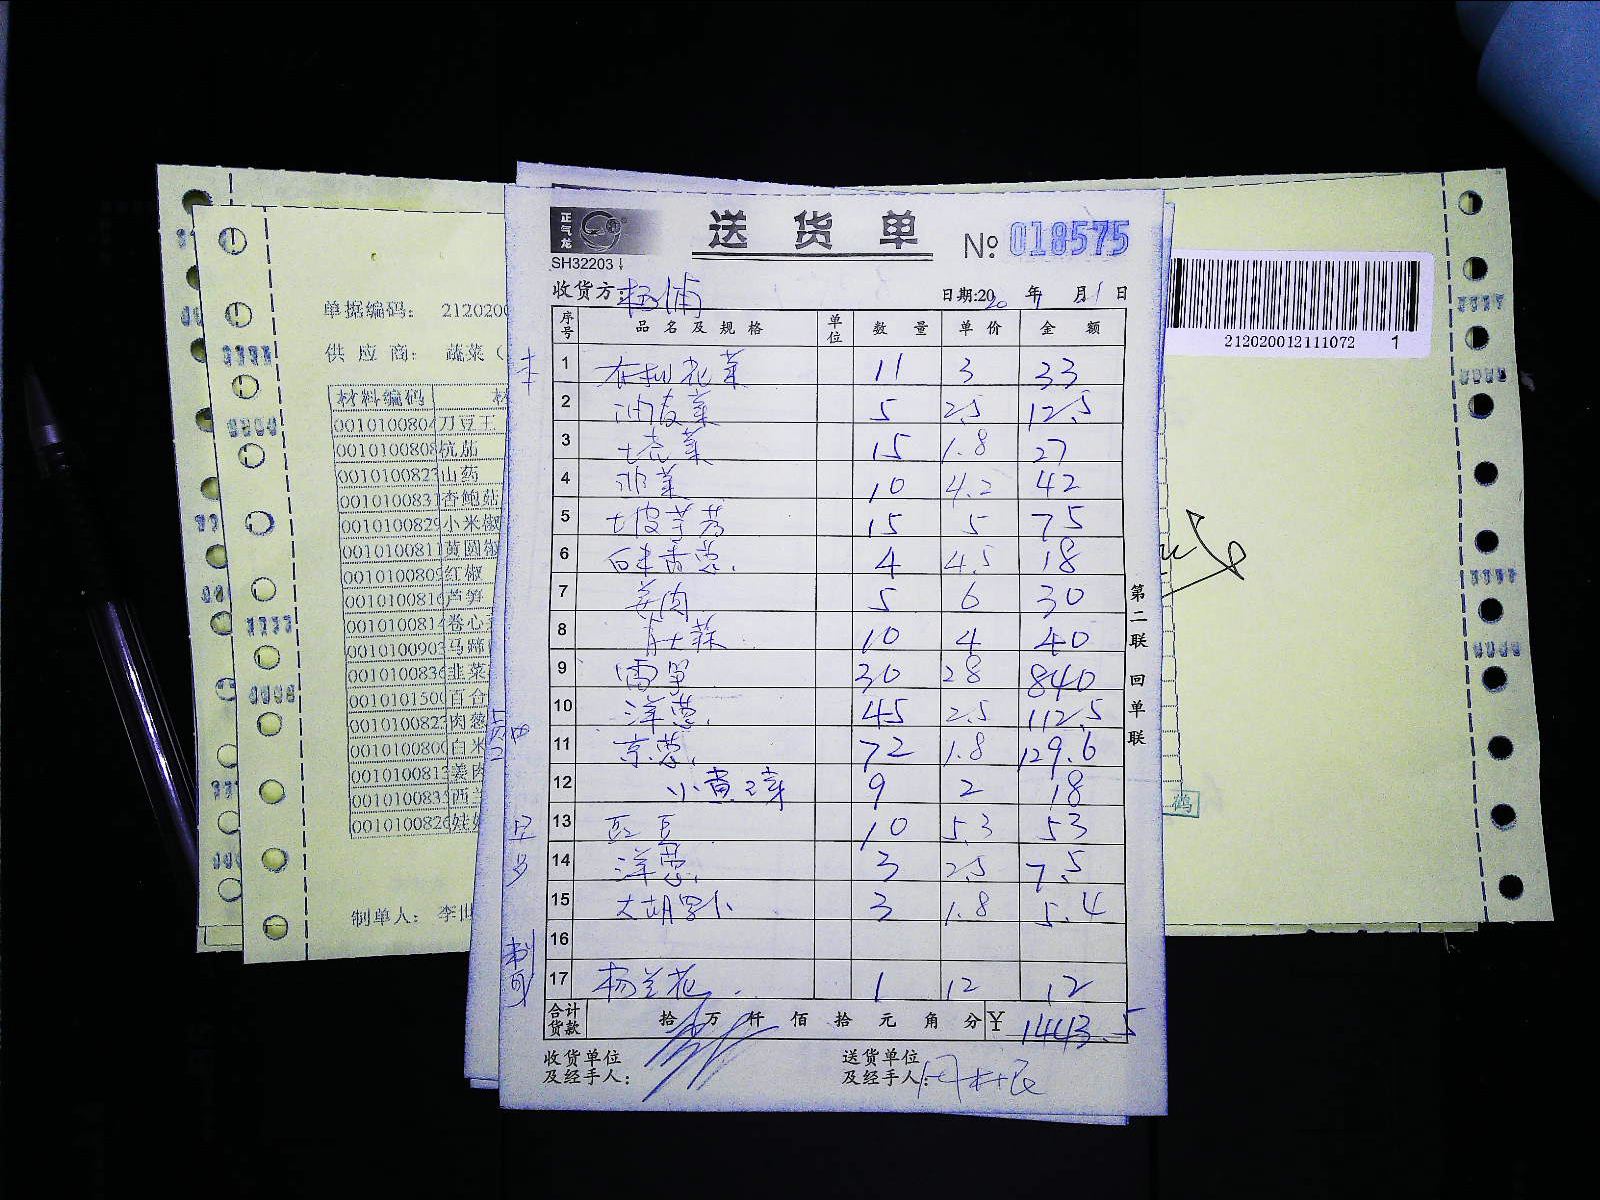 正气龙
送货单
№ 018575
SH32203
收货方: 杨浦
日期:2020年 月1日
序号 品名及规格 单位 数量 单价 金额
1 花菜 11 3 33
2 油皮菜 5 2.5 12.5
3 菜 15 1.8 27
4 菜 10 4.2 42
5 土皮芋艿 15 5 75
6 白米香葱 4 4.5 18
7 姜肉 5 6 30
8 10 4 40
9 雷笋 30 28 840
10 洋葱 45 2.5 112.5
11 京葱 72 1.8 129.6
12 小黄 9 2 18
13 豇豆 10 5.3 53
14 洋葱 3 2.5 7.5
15 大胡罗卜 3 1.8 5.4
16
17 杨兰花 1 12 12
合计货款 拾 万 仟 佰 拾 元 角 分 ¥ 1443.5
收货单位及经手人:
送货单位及经手人:
第二联 回单联
单据编码: 2120200
供应商: 蔬菜(
材料编码 材
0010100804 刀豆王
0010100808 杭茄
001010082 山药
001010083 杏鲍菇
0010100829 小米椒
0010100811 黄圆椒
001010080 红椒
0010100816 芦笋
0010100814 卷心
001010090 马蹄
0010100836 韭菜
0010101500 百合
001010082 肉葱
0010100800 白米
001010081 姜肉
001010083 西兰
0010100826 娃娃
制单人: 李世
212020012111072 1
鹤